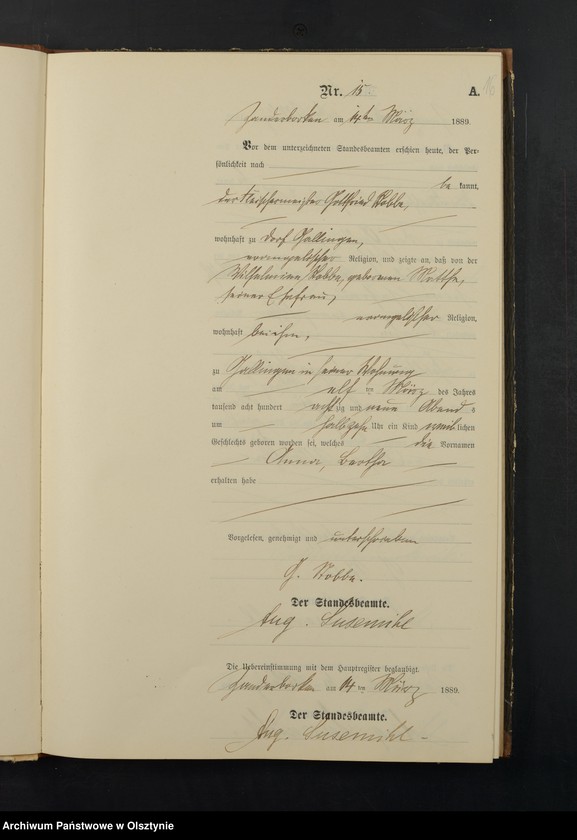 Nr. 15. A.
am 14ten März 1889.
Vor dem unterzeichneten Standesbeamten erschien heute, der Per-
sönlichkeit nach
be kannt,
der Fleischermeister Gottfried Kobbe,
wohnhaft zu Dorf Gallingen,
evangelischer Religion, und zeigte an, daß von der
Wilhelmine Kobbe, geborenen
seiner Ehefrau,
evangelischer Religion,
wohnhaft bei ihm,
zu Gallingen in seiner Wohnung
am elf ten März des Jahres
tausend acht hundert achtzig und neun Abend s
um halb zehn Uhr ein Kind weiblichen
Geschlechts geboren worden sei, welches die Vornamen
Anna, Bertha
erhalten habe
Vorgelesen, genehmigt und unterschrieben
G. Kobbe.
Der Standesbeamte.
Aug. Susemihl
Die Uebereinstimmung mit dem Hauptregister beglaubigt.
am 14 ten März 1889.
Der Standesbeamte.
Aug. Susemihl -
Archiwum Państwowe w Olsztynie